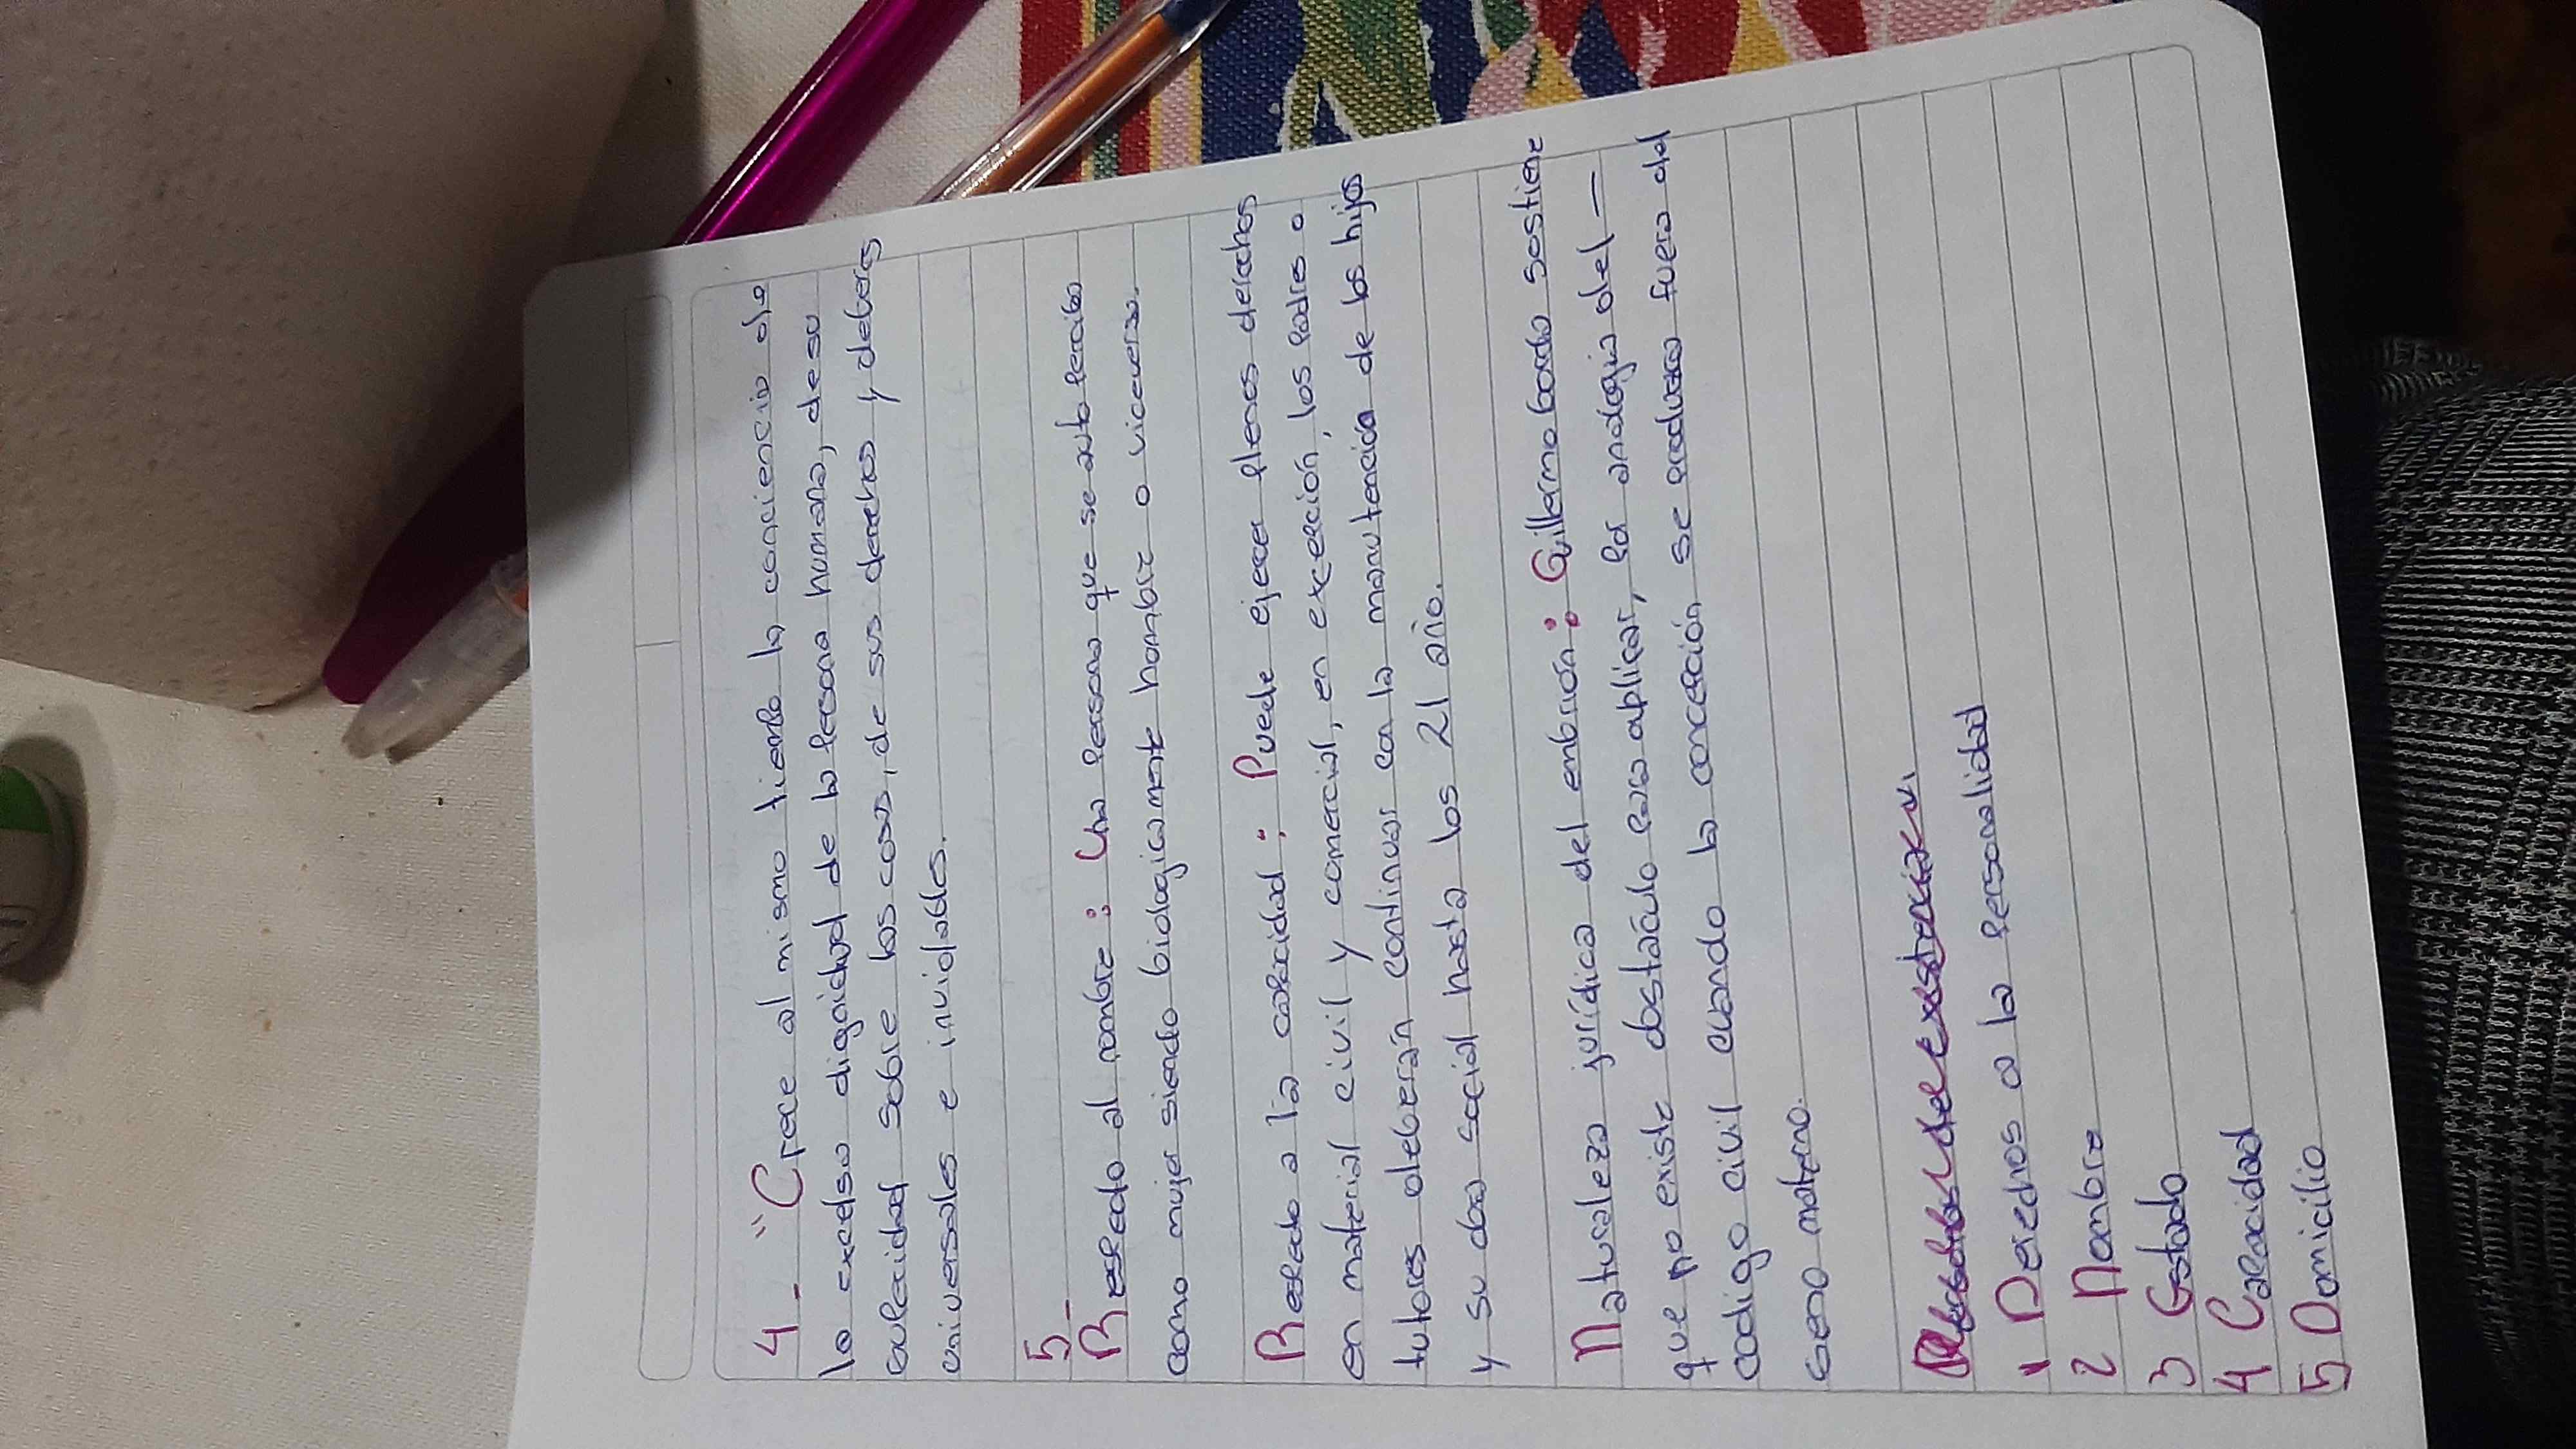 4- "Crece al mismo tiempo la conciencia de
la excelsa dignidad de la persona humana, de su
superioridad sobre las cosas, de sus derechos y deberes
universales e inviolables.
5-
Respecto al nombre: Una persona que se auto percibo
como mujer siendo biologicamente hombre o viceversa.
Respecto a la capacidad: Puede ejercer plenos derechos
en material civil y comercial, en excepción, los padres o
tutores deberán continuar con la manutención de los hijos
y su obra social hasta los 21 año.
Naturaleza jurídica del embrión: Guillermo borda sostiene
que no existe obstáculo para aplicar, por analogia del –
codigo civil cuando la concepción se produzca fuera del
seno materno.
1 Derechos a la personalidad
2 Nombre
3 Estado
4 Capacidad
5 Domicilio